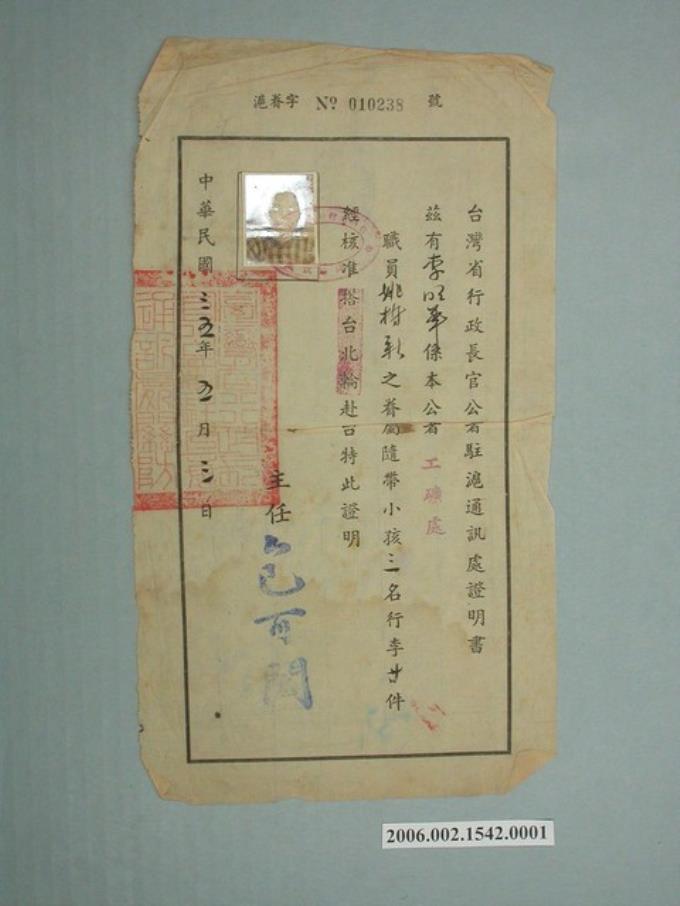 滬眷字 № 010238 號
台灣省行政長官公署駐滬通訊處證明書
茲有李明華係本公署工礦處
職員姚樹彰之眷屬隨帶小孩三名行李廿件
經核准搭台北輪赴台特此證明
主任
中華民國三五年五月三日
2006.002.1542.0001